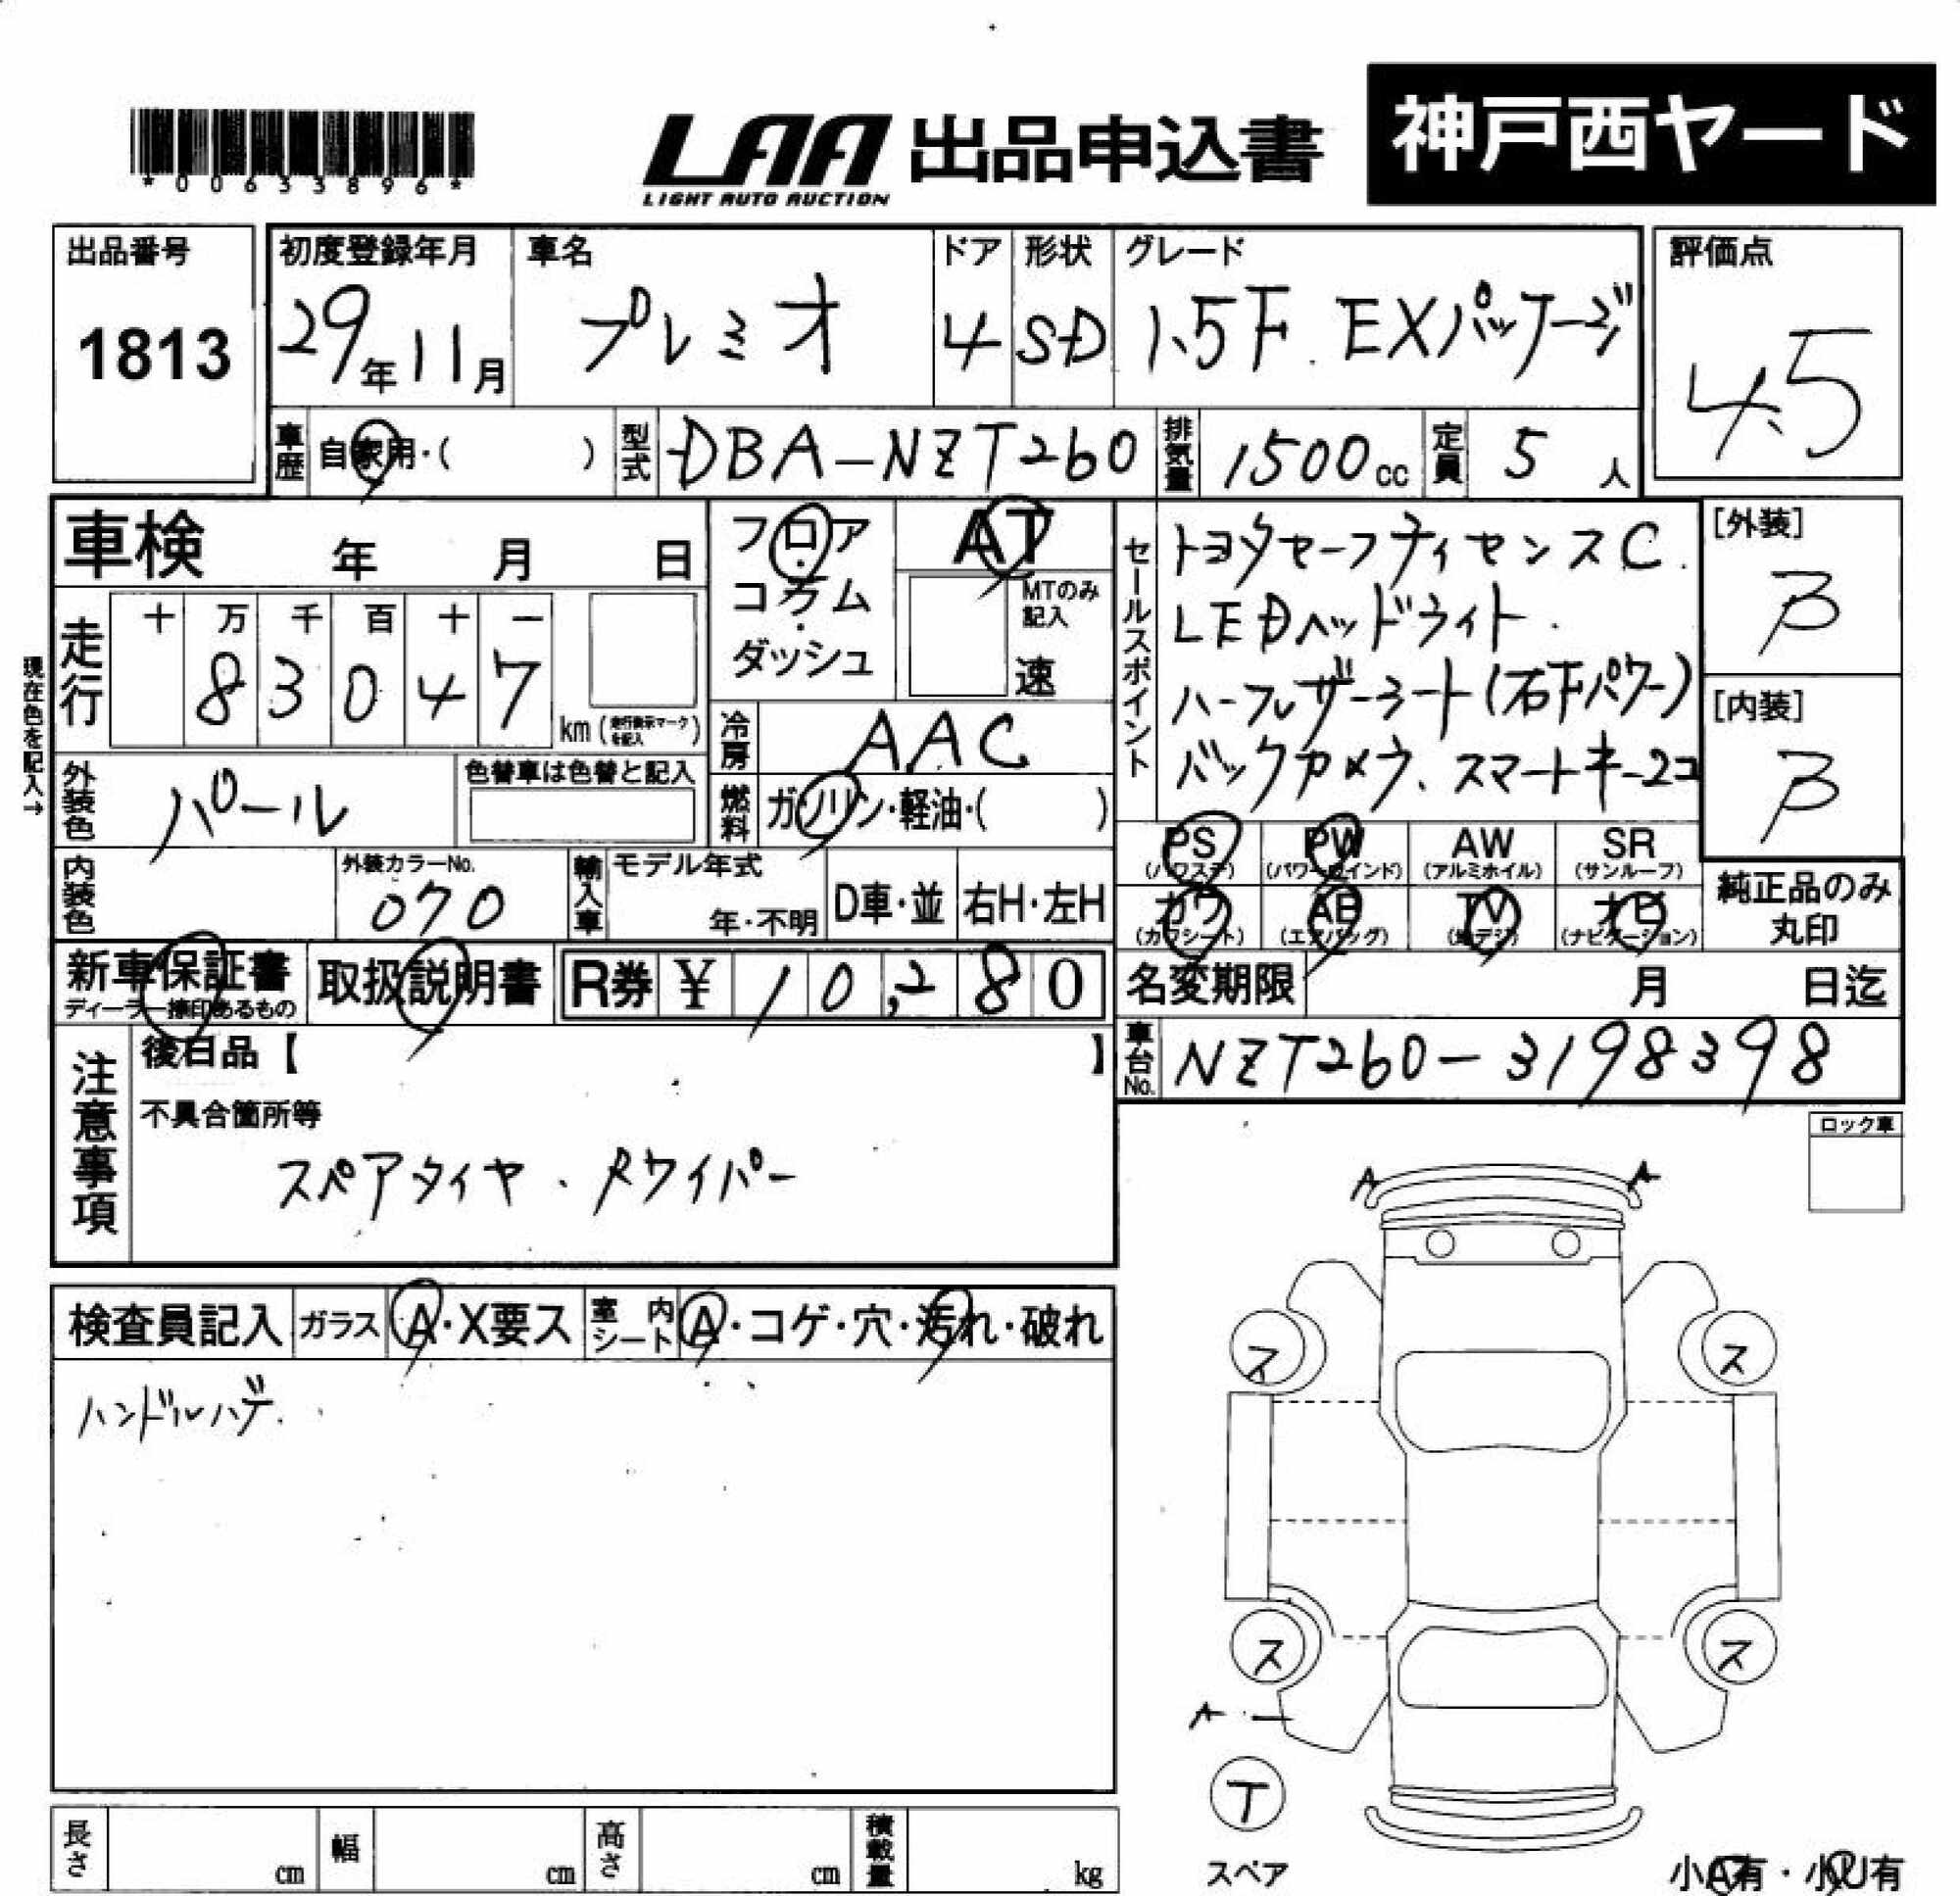 *00633896*
LAA 出品申込書 神戸西ヤード
LIGHT AUTO AUCTION
出品番号 1813
初度登録年月 29年11月
車名 プレミオ
ドア 4
形状 SD
グレード 1.5F. EXパッケージ
評価点 4.5
車歴 自家用・( )
型式 DBA-NZT260
排気量 1500cc
定員 5人
車検 年 月 日
フロア・コラム・ダッシュ
AT
MTのみ記入
速
現在色を記入→
走行 十 万 千 百 十 一
83047
km(走行表示マークを記入)
冷房 AAC
燃料 ガソリン・軽油・( )
セールスポイント
トヨタセーフティセンスC.
LEDヘッドライト.
ハーフレザーシート(右Fパワー)
バックカメラ、スマートキー2コ
[外装] B
[内装] B
外装色 パール
色替車は色替と記入
内装色
外装カラーNo. 070
輸入車 モデル年式 年・不明
D車・並
右H・左H
PS (パワステ)
PW (パワーウインド)
AW (アルミホイル)
SR (サンルーフ)
カワ (カワシート)
AB (エアバッグ)
TV (地デジ)
ナビ (ナビゲーション)
純正品のみ丸印
新車保証書
ディーラー捺印あるもの
取扱説明書
R券 ¥10,280
名変期限 月 日迄
車台No. NZT260-3198398
注意事項
後日品【 】
不具合箇所等
スペアタイヤ、Rワイパー
ロック車
検査員記入
ガラス A・X要ス
室内シート A・コゲ・穴・汚れ・破れ
ハンドルハゲ.
A
A
ス
ス
ス
ス
A
T
スペア
長さ cm
幅 cm
高さ cm
積載量 kg
小A有・小U有